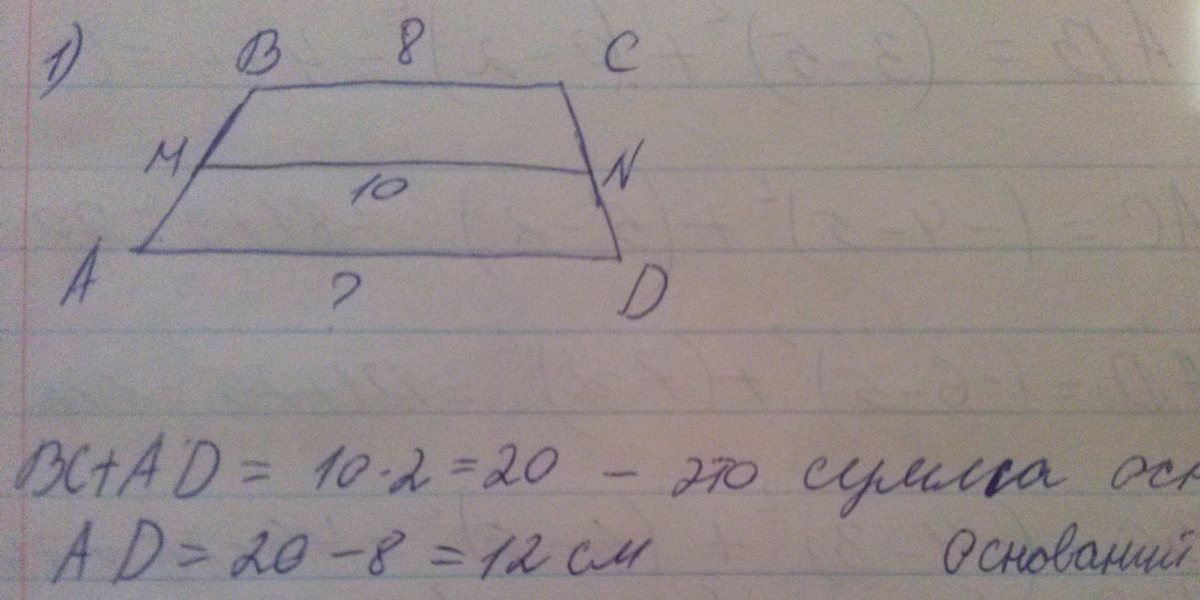 1) B 8 C
M N
10
A ? D
BC+AD = 10·2=20 – это сумма осн
AD = 20-8 = 12 см оснований